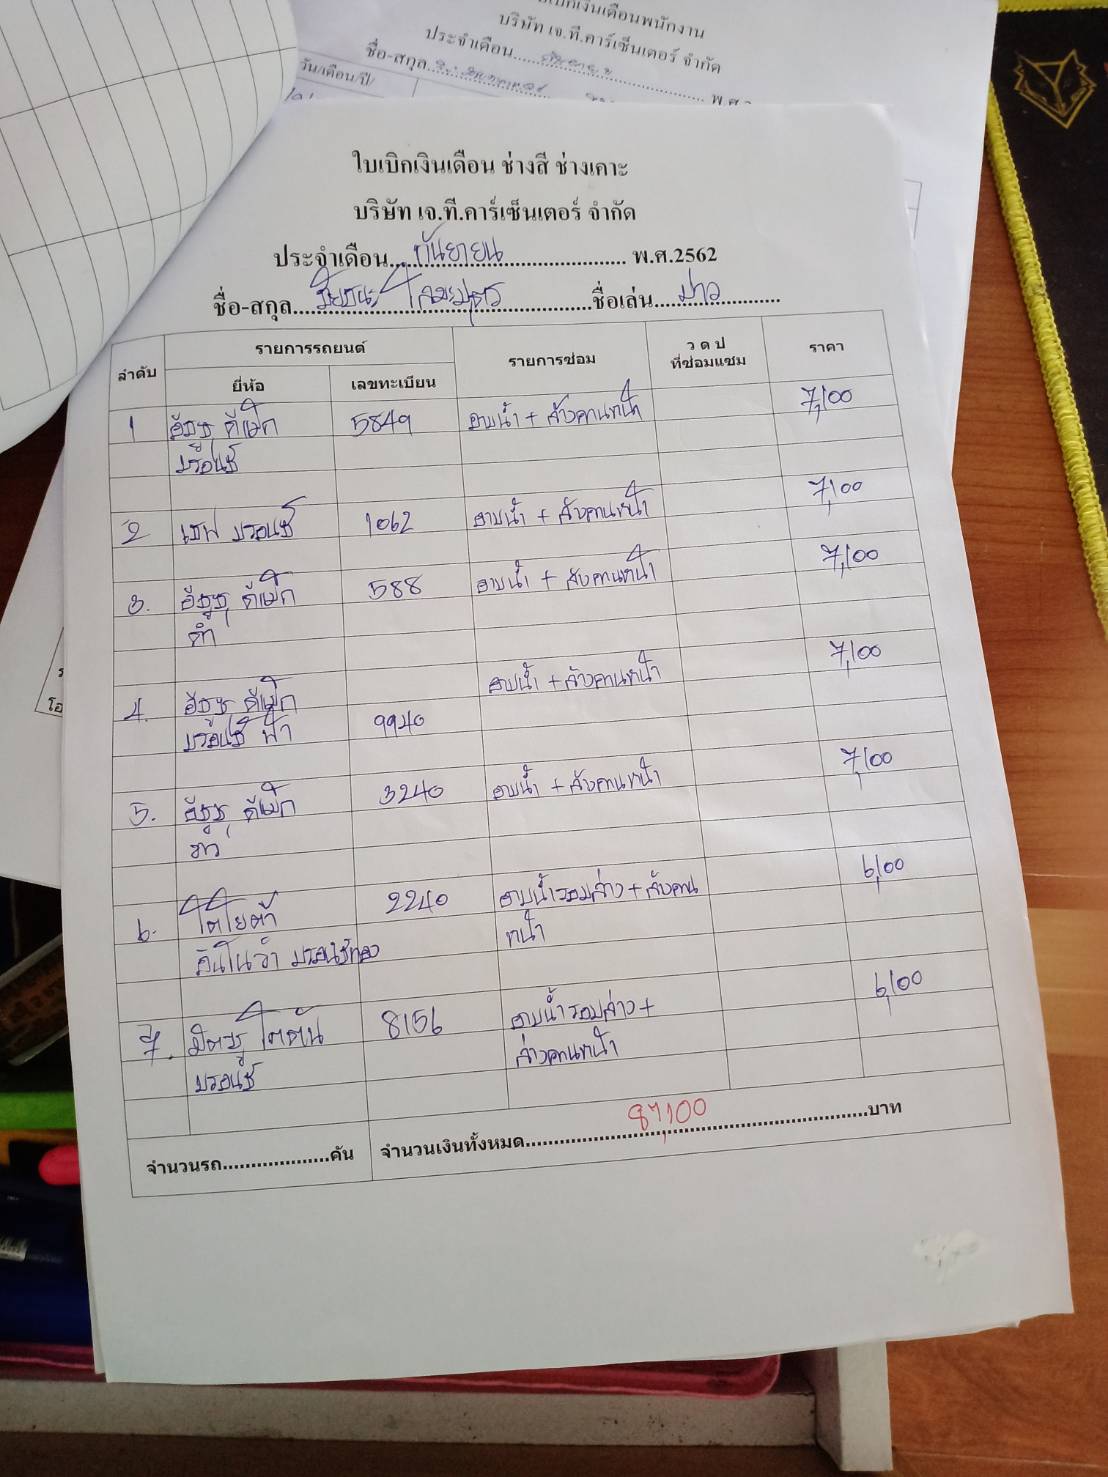 บริษัท เจ.ที.คาร์เซ็นเตอร์ จำกัด
ประจำเดือน
ชื่อ-สกุล
วัน/เดือน/ปี/
ใบเบิกเงินเดือน ช่างสี ช่างเคาะ
บริษัท เจ.ที.คาร์เซ็นเตอร์ จำกัด
ประจำเดือน....กันยายน.................... พ.ศ.2562
ชื่อ-สกุล....................ชื่อเล่น....ขาว..........
ลำดับ รายการรถยนต์ รายการซ่อม ว ด ป ราคา
ยี่ห้อ เลขทะเบียน ที่ซ่อมแซม
1 อีซูซุ ดีแม็ก 5849 อาบน้ำ + ล้างคานหน้า 7,100
บรอนซ์
2 เชฟ บรอนซ์ 1062 อาบน้ำ + ล้างคานหน้า 7,100
3. อีซูซุ ดีแม็ก 588 อาบน้ำ + ล้างคานหน้า 7,100
ดำ
4. อีซูซุ ดีแม็ก อาบน้ำ + ล้างคานหน้า 7,100
บรอนซ์ ฟ้า 9940
5. อีซูซุ ดีแม็ก 3240 อาบน้ำ + ล้างคานหน้า 7,100
ขาว
6. โตโยต้า 2240 อาบน้ำรอบล่าง + ล้างคาน 6,100
อินโนว่า บรอนซ์ทอง หน้า
7. มิตซู ไตตัน 8156 อาบน้ำรอบล่าง + 6,100
บรอนซ์ ล่างคานหน้า
จำนวนรถ....................คัน จำนวนเงินทั้งหมด....................บาท